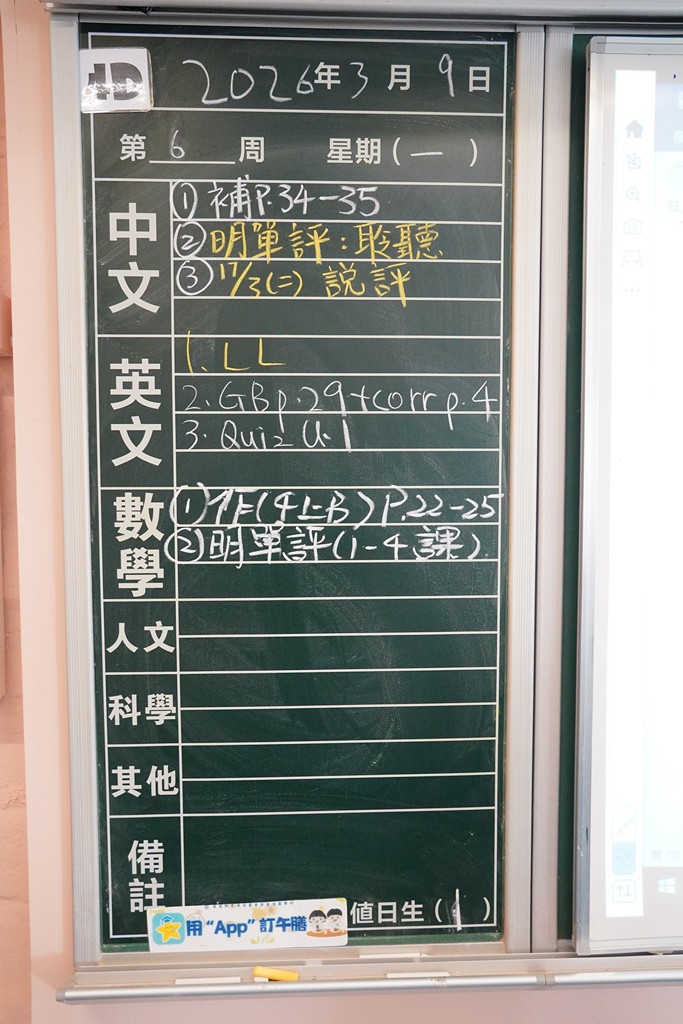 4D
2026年3月9日
第 6 周 星期(一)
中文
① 補P.34-35
② 明單評:聆聽
③ 17/3(二) 説評
英文
1. LL
2. GB p.29+corr p.4
3. Quiz U.1
數學
① 作(4上B) P.22-25
② 明單評(1-4課)
人文
科學
其他
備註
值日生(1)
用“App”訂午膳